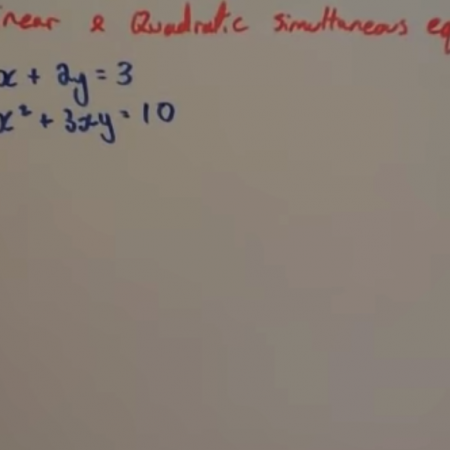 inear & Quadratic simultaneous eq
x + 2y = 3
x² + 3xy = 10